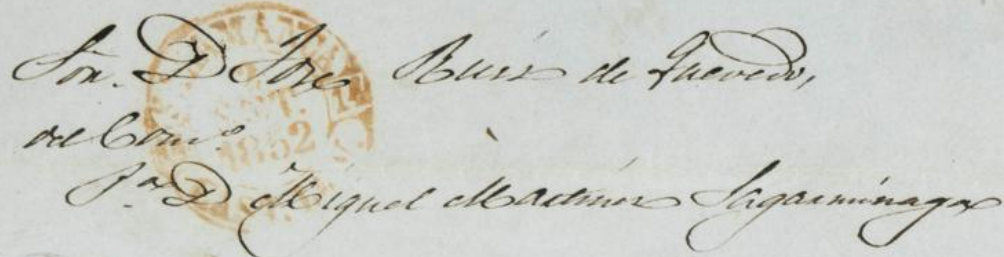 Sor. D Jose Ruiz de Quevedo,
del Comº
Pª D Miguel Martinez Sagarminaga
1852